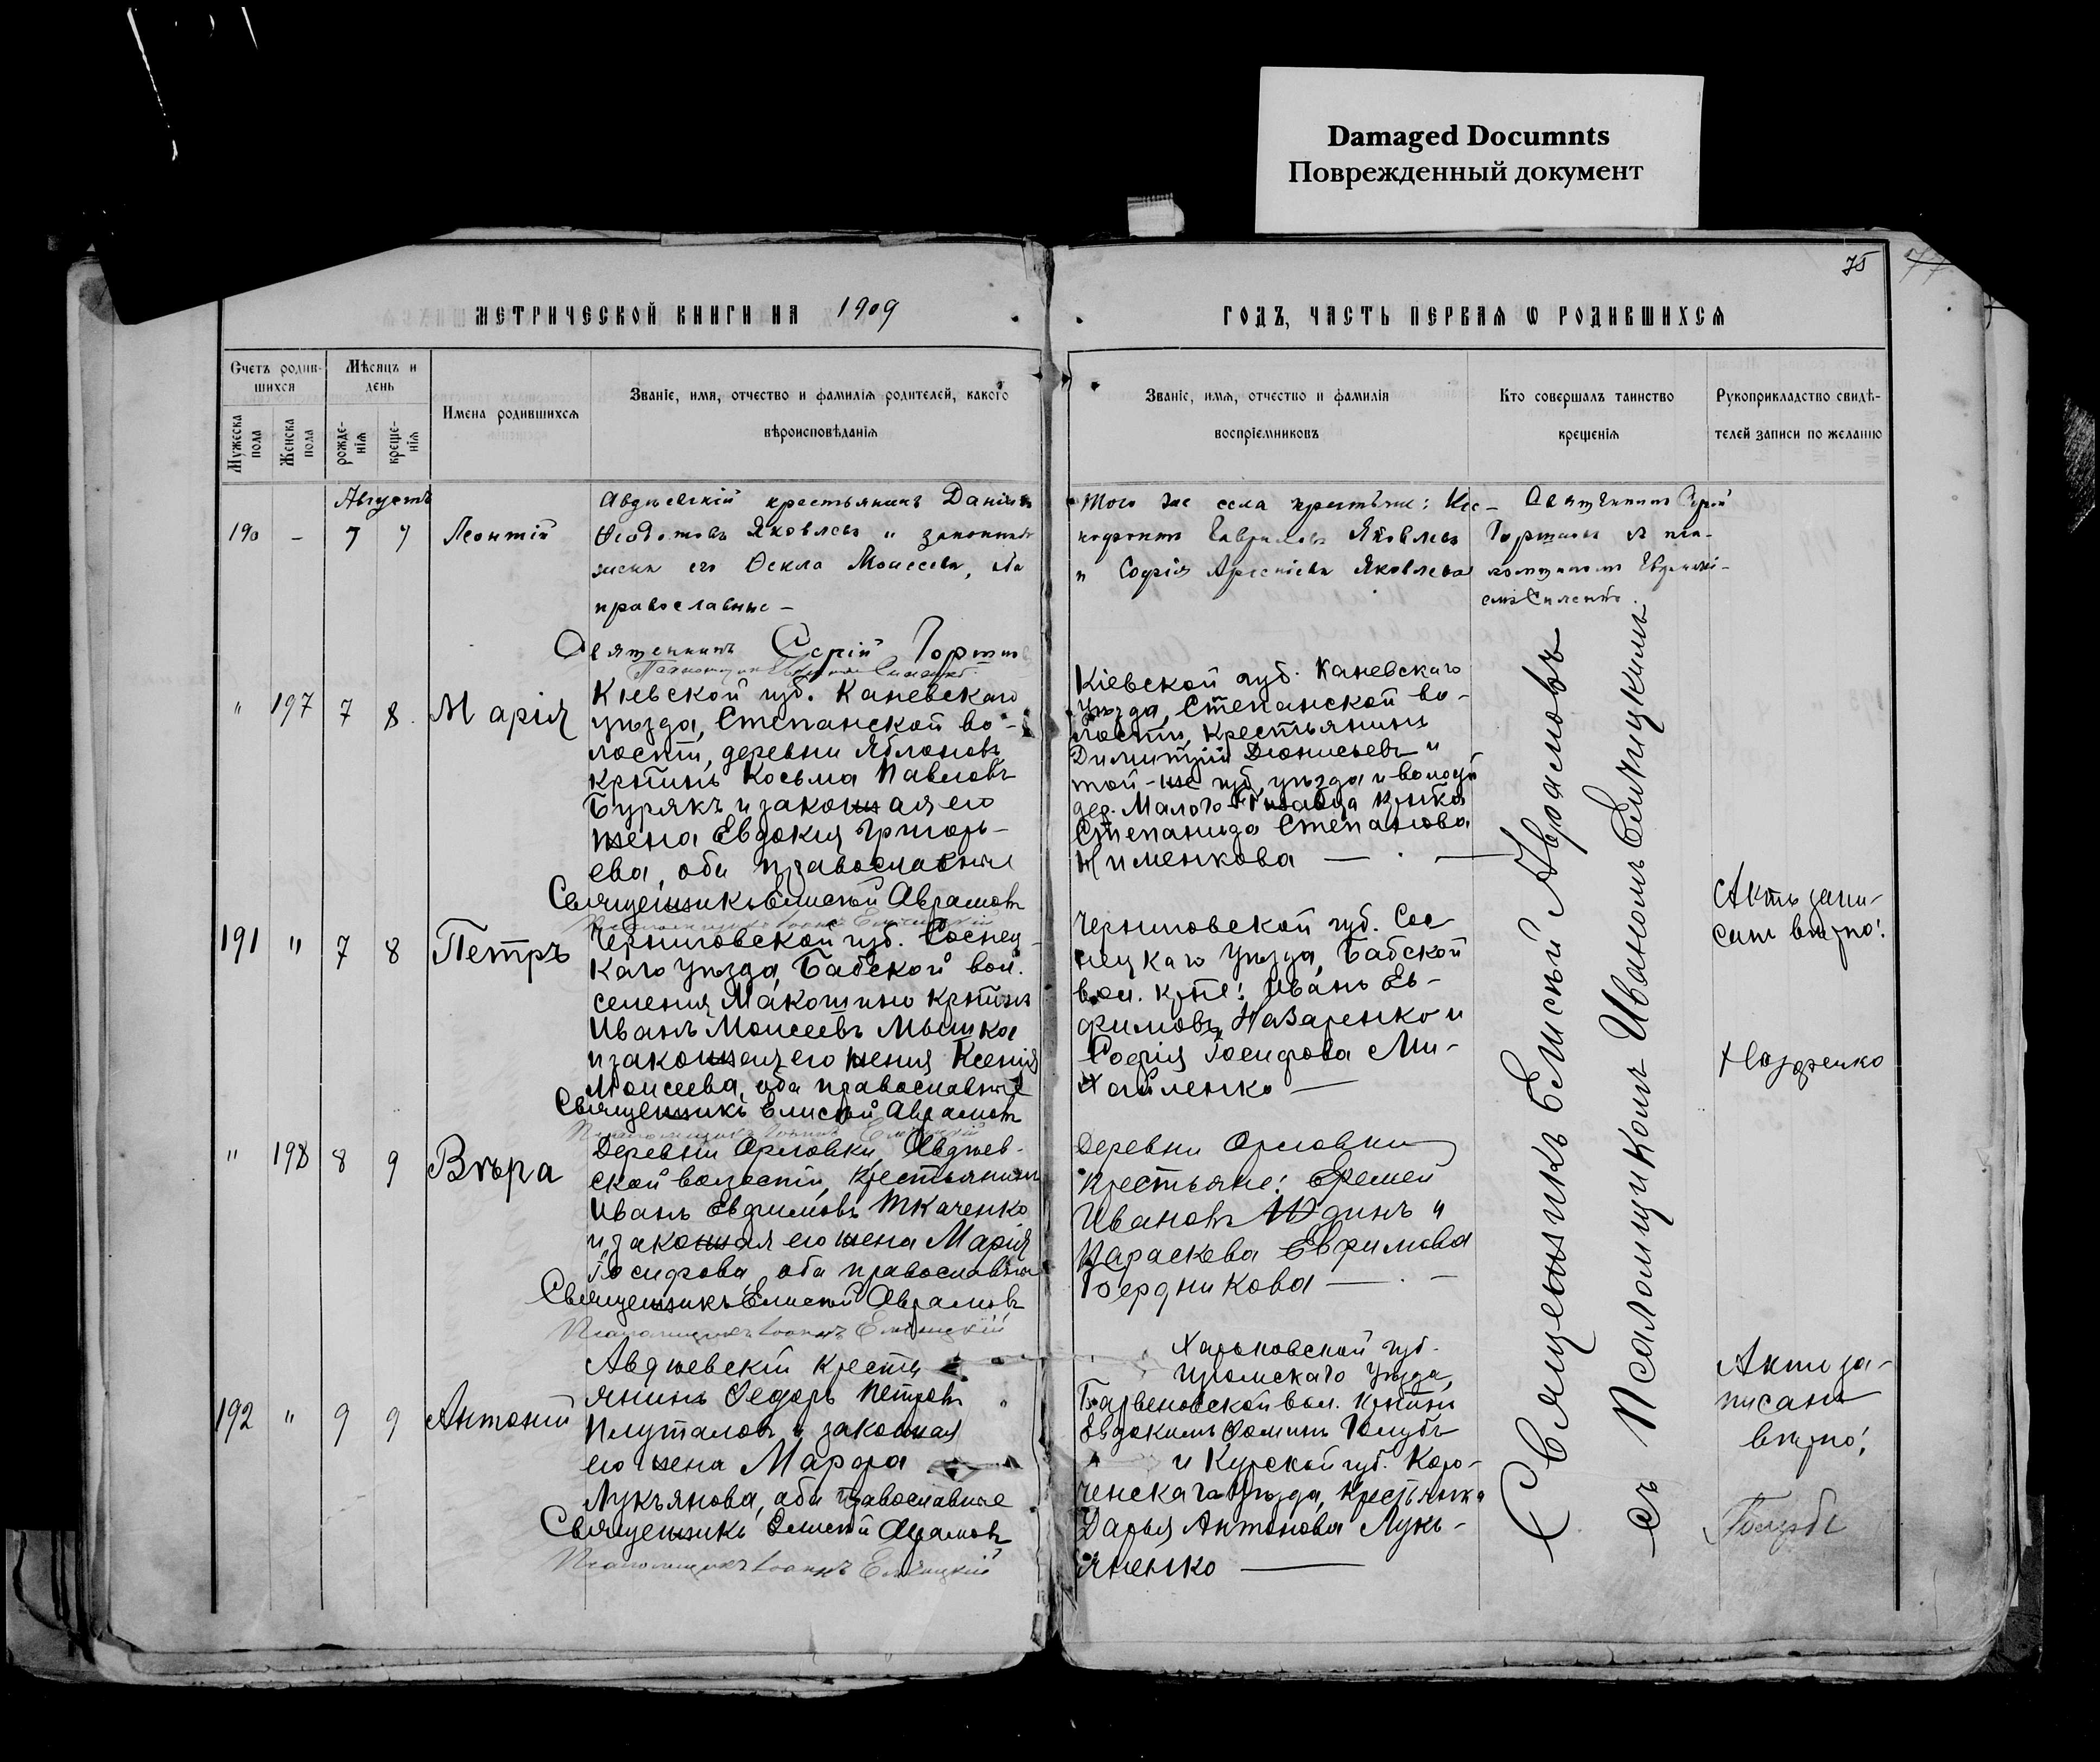 Damaged Documnts
Поврежденный документ
75
77
МЕТРИЧЕСКОЙ КНИГИ НА 1909
ГОДЪ, ЧАСТЬ ПЕРВАЯ Ѡ РОДИВШИХСЯ
Счетъ родив-
шихся
Мужеска пола
Женска пола
Мѣсяцъ и
день
рожде-
нія
креще-
нія
Имена родившихся
Званіе, имя, отчество и фамилія родителей, какого
вѣроисповѣданія
Званіе, имя, отчество и фамилія
воспріемниковъ
Кто совершалъ таинство
крещенія
Рукоприкладство свидѣ-
телей записи по желанію
Августъ
190 - 7 7 Леонтій
Авдѣевскій крестьянинъ Даніилъ
Ѳеодотовъ Яковлевъ и законная
жена его Ѳекла Моисеева, оба
православные –
Священникъ Сергій
Того же села крестьяне:
Гавриловъ Яковлевъ
и Софія Арсеніева Яковлева
Священникъ Сергій
" 197 7 8. Марія
Кіевской губ. Каневскаго
уѣзда, Степанской во-
лости, деревни Яблоновъ
крѣтинъ Косьма Павловъ
Бурякъ и законная его
жена Евдокия Григорь-
ева, оба православные
Священникъ Елисей Аврамовъ
Кіевской губ. Каневскаго
уѣзда, Степанской во-
лости, Крестьянинъ
Димитрій Діонисьевъ и
той-же губ, уѣзда и волости
дер. Малого
Степанида Степанова
191 " 7 8 Петръ
Черниговской губ. Сосниц-
каго уѣзда, Бабской вол.
селения Макошино крѣтинъ
Иванъ Моисеевъ Мышка
и законная его жена Ксения
Моисеева, оба православные
Священникъ Елисей Аврамовъ
Черниговской губ. Сос-
ницкаго уѣзда, Бабской
вол. крѣте: Иванъ Ев-
фимовъ Назаренко и
Софія Іосифова Ми-
хайленко –
Актъ запи-
санъ вѣрно!
" 198 8 9 Вѣра
Деревни Орловки, Авдѣев-
ской волости, крестьянинъ
Иванъ Евфимовъ Ткаченко
и законная его жена Марія
Іосифова, оба православные
Священникъ Елисей Аврамовъ
Псаломщикъ Іоаннъ
Деревни Орловки
крестьяне: Еремей
Ивановъ Юдинъ и
Параскева Евфимова
Бердникова – . –
192 " 9 9 Антоній
Авдѣевскій кресть
янинъ Ѳедоръ Петровъ
Плуталовъ и законная
его жена Марфа
Лукьянова, оба православные
Священникъ Елисей Аврамовъ
Псаломщикъ Іоаннъ
Харьковской губ.
Изюмскаго уѣзда,
Барвенковской вол. крѣтинъ
Евдокимъ Ѳоминъ Голубъ
и Курской губ. Коро-
ченскаго уѣзда, крестьянка
Дарья Антонова Лукь-
яненко –
Актъ за-
писанъ
вѣрно!
Голубъ
Священникъ Елисей Аврамовъ
съ Псаломщикомъ Иваномъ